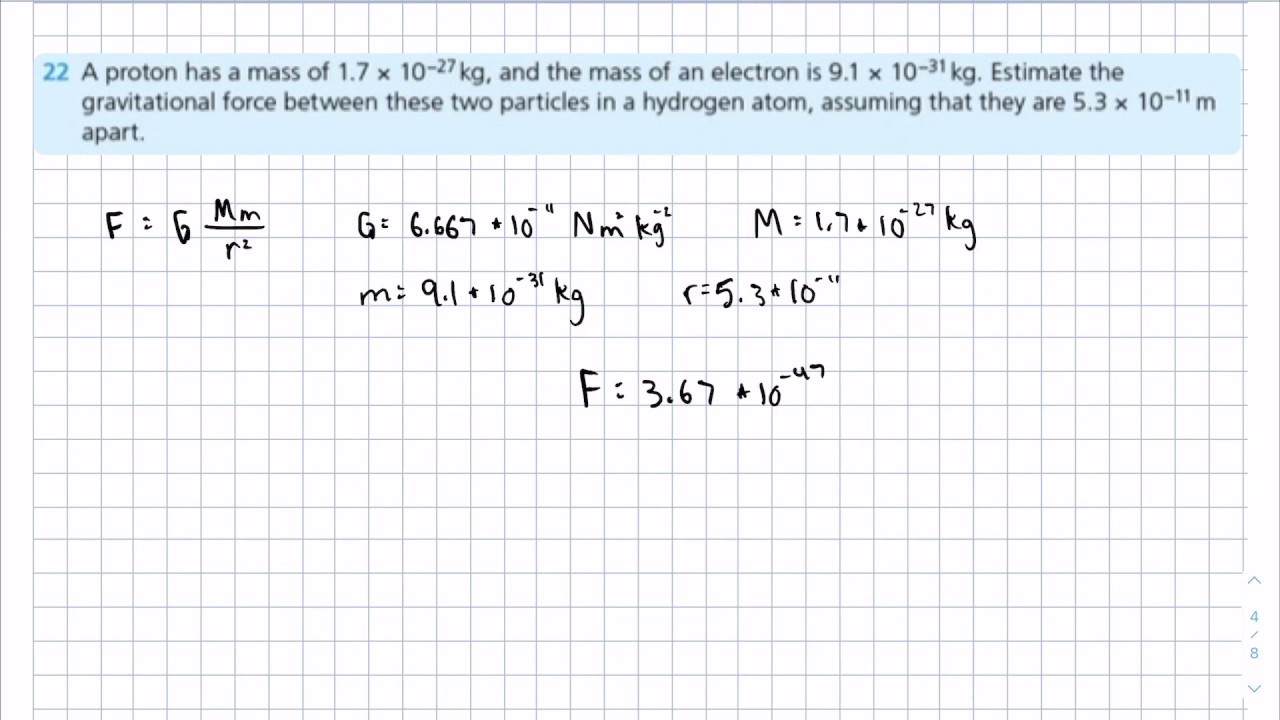 22 A proton has a mass of 1.7 × 10⁻²⁷ kg, and the mass of an electron is 9.1 × 10⁻³¹ kg. Estimate the
gravitational force between these two particles in a hydrogen atom, assuming that they are 5.3 × 10⁻¹¹ m
apart.
F = G Mm/r² G = 6.667 * 10⁻¹¹ Nm²kg⁻² M = 1.7 * 10⁻²⁷ kg
m = 9.1 * 10⁻³¹ kg r = 5.3 * 10⁻¹¹
F = 3.67 * 10⁻⁴⁷
4
/
8